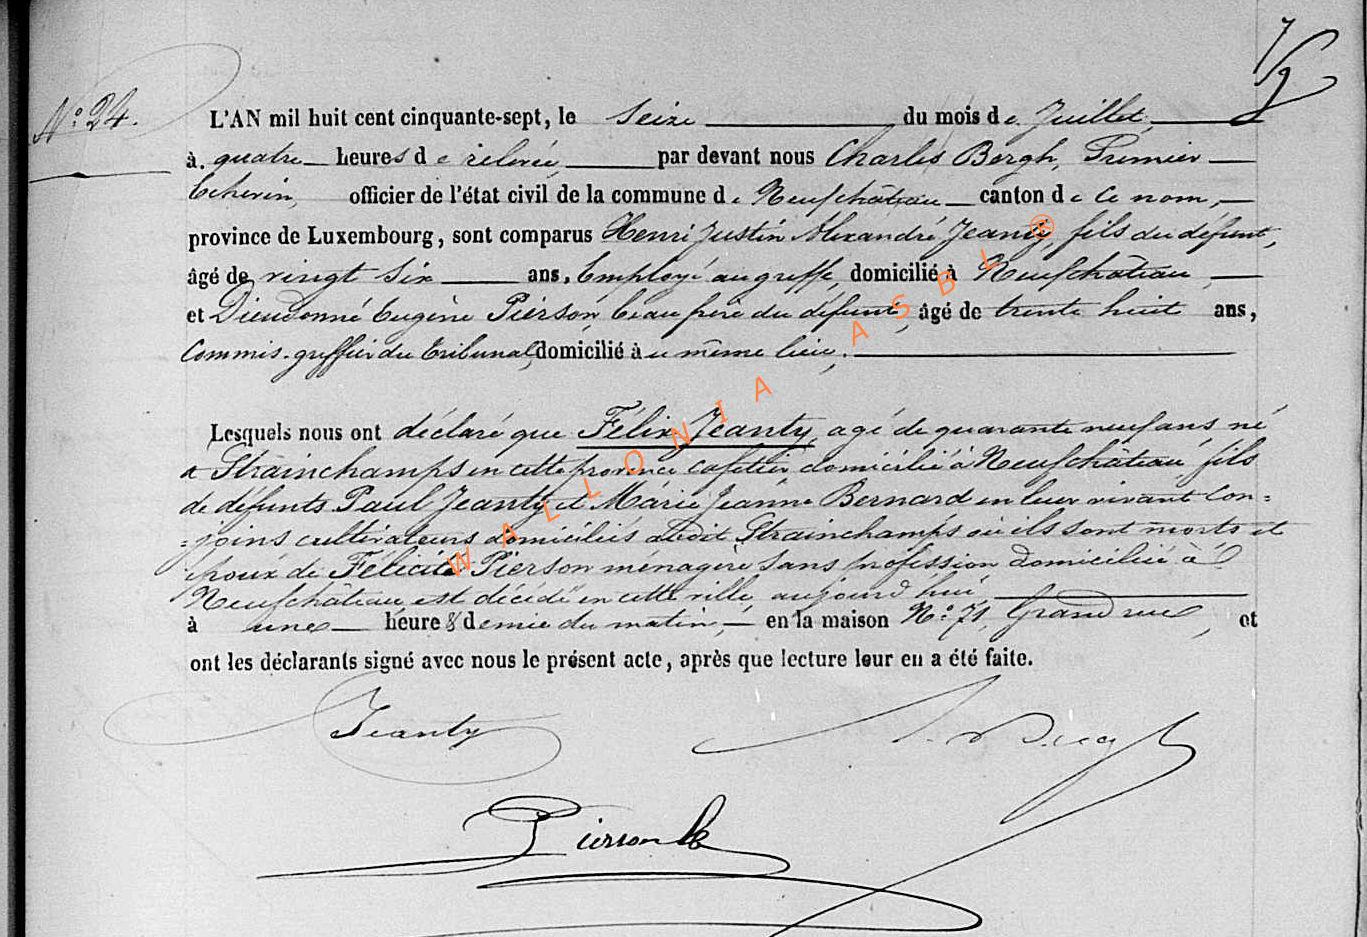 7/2
N° 24. L'AN mil huit cent cinquante-sept, le Seize du mois de Juillet,
à quatre heures de relevée, par devant nous Charles Bergh, Premier
Echevin, officier de l'état civil de la commune de Neufchâteau canton de ce nom,
province de Luxembourg, sont comparus Henri Justin Alexandre Jeanty, fils du défunt,
âgé de vingt six ans, Employé au greffe, domicilié à Neufchâteau,
et Dieudonné Eugène Pierson, beau frère du défunt, âgé de trente huit ans,
Commis-greffier du tribunal, domicilié au même lieu,
Lesquels nous ont déclaré que Félix Jeanty, agé de quarante neuf ans, né
a Strainchamps en cette province cafetier domicilié à Neufchâteau fils
de défunts Paul Jeanty et Marie Jeanne Bernard en leur vivant Con=
=joins cultivateurs domiciliés audit Strainchamps où ils sont morts et
époux de Félicité Pierson ménagère sans profession domiciliée à
Neufchateau, est décédé en cette ville, aujourd'hui,
à une heure & demie du matin, en la maison N° 71, Grand rue, et
ont les déclarants signé avec nous le présent acte, après que lecture leur en a été faite.
Jeanty
Bergh
Pierson
WALLONIA ASBL ®